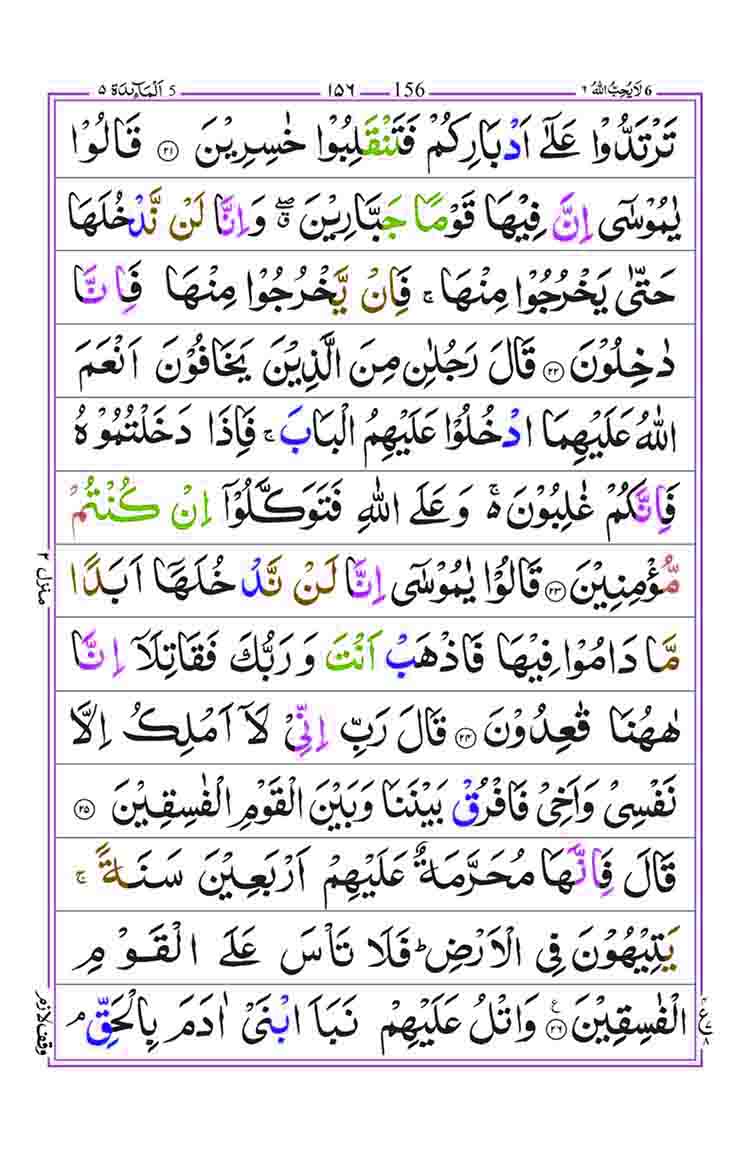 5 اَلْمَآىِٕدَة ٥ ١٥٦ 156 لَا يُحِبُّ اللّٰهُ ٦ 6
تَرْتَدُّوْا عَلٰٓى اَدْبَارِكُمْ فَتَنْقَلِبُوْا خٰسِرِيْنَ ۝٢١ قَالُوْا
يٰمُوْسٰٓى اِنَّ فِيْهَا قَوْمًا جَبَّارِيْنَ ۖۗ وَاِنَّا لَنْ نَّدْخُلَهَا
حَتّٰى يَخْرُجُوْا مِنْهَا ۚ فَاِنْ يَّخْرُجُوْا مِنْهَا فَاِنَّا
دٰخِلُوْنَ ۝٢٢ قَالَ رَجُلٰنِ مِنَ الَّذِيْنَ يَخَافُوْنَ اَنْعَمَ
اللّٰهُ عَلَيْهِمَا ادْخُلُوْا عَلَيْهِمُ الْبَابَ ۚ فَاِذَا دَخَلْتُمُوْهُ
فَاِنَّكُمْ غٰلِبُوْنَ ەۚ وَعَلَى اللّٰهِ فَتَوَكَّلُوْٓا اِنْ كُنْتُمْ
مُّؤْمِنِيْنَ ۝٢٣ قَالُوْا يٰمُوْسٰٓى اِنَّا لَنْ نَّدْخُلَهَآ اَبَدًا
مَّا دَامُوْا فِيْهَا فَاذْهَبْ اَنْتَ وَرَبُّكَ فَقَاتِلَآ اِنَّا
هٰهُنَا قٰعِدُوْنَ ۝٢٤ قَالَ رَبِّ اِنِّيْ لَآ اَمْلِكُ اِلَّا
نَفْسِيْ وَاَخِيْ فَافْرُقْ بَيْنَنَا وَبَيْنَ الْقَوْمِ الْفٰسِقِيْنَ ۝٢٥
قَالَ فَاِنَّهَا مُحَرَّمَةٌ عَلَيْهِمْ اَرْبَعِيْنَ سَنَةً ۚ
يَتِيْهُوْنَ فِي الْاَرْضِ ؕ فَلَا تَاْسَ عَلَى الْقَوْمِ
الْفٰسِقِيْنَ ۝٢٦ ع وَاتْلُ عَلَيْهِمْ نَبَاَ ابْنَيْ اٰدَمَ بِالْحَقِّ ۘ
منزل ٢
وقف لازم
ع ٨